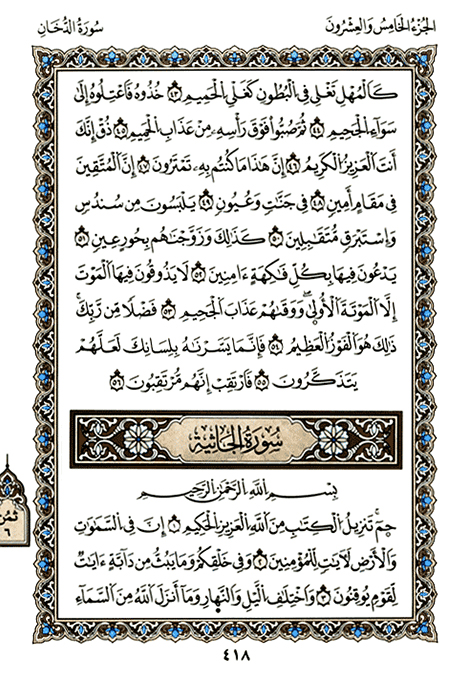 الجُزْءُ الخَامِسُ وَالعِشْرُونَ
سُورَةُ الدُّخَانِ
كَالْمُهْلِ تَغْلِى فِى الْبُطُونِ كَغَلْىِ الْحَمِيمِ ٤٣ خُذُوهُ فَاعْتِلُوهُ إِلَىٰ
سَوَآءِ الْجَحِيمِ ٤٤ ثُمَّ صُبُّواْ فَوْقَ رَأْسِهِۦ مِنْ عَذَابِ الْحَمِيمِ ٤٥ ذُقْ إِنَّكَ
أَنتَ الْعَزِيزُ الْكَرِيمُ ٤٦ إِنَّ هَٰذَا مَا كُنتُم بِهِۦ تَمْتَرُونَ ٤٧ إِنَّ الْمُتَّقِينَ
فِى مَقَامٍ أَمِينٍ ٤٨ فِى جَنَّٰتٍ وَعُيُونٍ ٤٩ يَلْبَسُونَ مِن سُندُسٍ
وَإِسْتَبْرَقٍ مُّتَقَٰبِلِينَ ٥٠ كَذَٰلِكَ وَزَوَّجْنَٰهُم بِحُورٍ عِينٍ ٥١
يَدْعُونَ فِيهَا بِكُلِّ فَٰكِهَةٍ ءَامِنِينَ ٥٢ لَا يَذُوقُونَ فِيهَا الْمَوْتَ
إِلَّا الْمَوْتَةَ الْأُولَىٰ وَوَقَىٰهُمْ عَذَابَ الْجَحِيمِ ٥٣ فَضْلًا مِّن رَّبِّكَ
ذَٰلِكَ هُوَ الْفَوْزُ الْعَظِيمُ ٥٤ فَإِنَّمَا يَسَّرْنَٰهُ بِلِسَانِكَ لَعَلَّهُمْ
يَتَذَكَّرُونَ ٥٥ فَارْتَقِبْ إِنَّهُم مُّرْتَقِبُونَ ٥٦
سُورَةُ الجَاثِيَةِ
بِسْمِ اللَّهِ الرَّحْمَٰنِ الرَّحِيمِ
حمٓ تَنزِيلُ الْكِتَٰبِ مِنَ اللَّهِ الْعَزِيزِ الْحَكِيمِ ١ إِنَّ فِى السَّمَٰوَٰتِ
وَالْأَرْضِ لَأٓيَٰتٍ لِّلْمُؤْمِنِينَ ٢ وَفِى خَلْقِكُمْ وَمَا يَبُثُّ مِن دَآبَّةٍ ءَايَٰتٌ
لِّقَوْمٍ يُوقِنُونَ ٣ وَاخْتِلَٰفِ الَّيْلِ وَالنَّهَارِ وَمَآ أَنزَلَ اللَّهُ مِنَ السَّمَآءِ
ثمن
٦
٤١٨